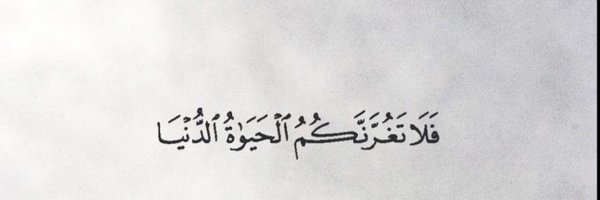 فَلَا تَغُرَّنَّكُمُ ٱلۡحَيَوٰةُ ٱلدُّنۡيَا